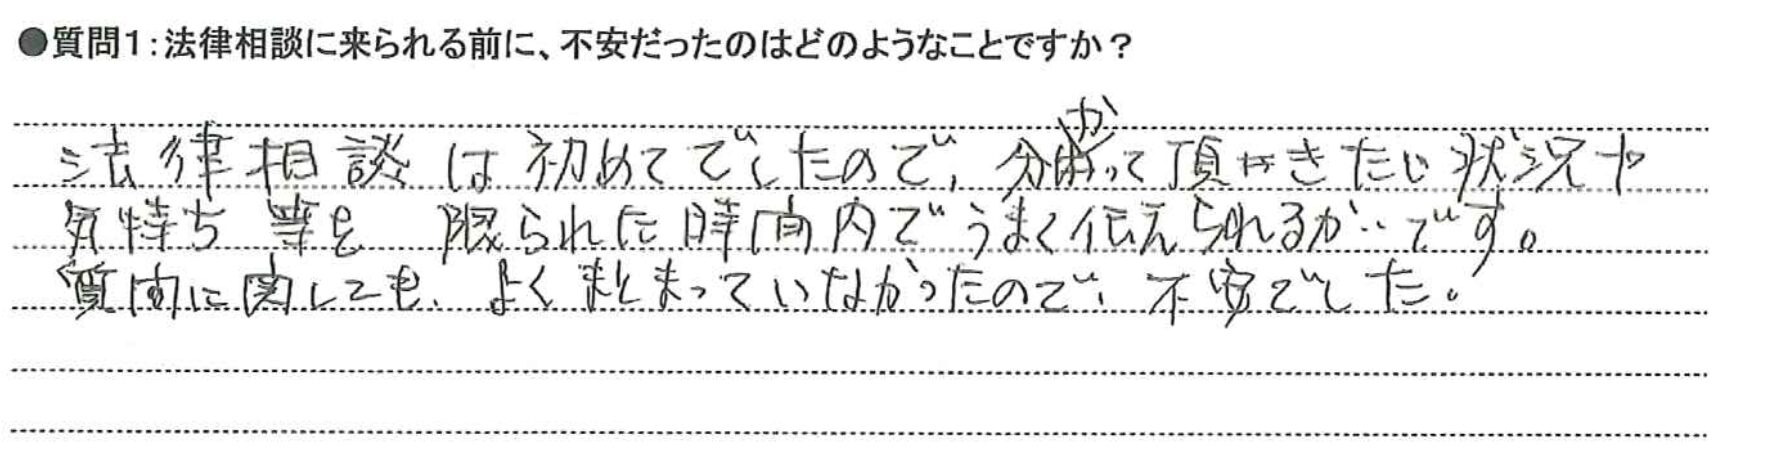 ●質問1:法律相談に来られる前に、不安だったのはどのようなことですか？
法律相談は初めてでしたので、分かって頂きたい状況や
気持ち等を限られた時間内でうまく伝えられるか‥です。
質問に関しても、よくまとまっていなかったので、不安でした。